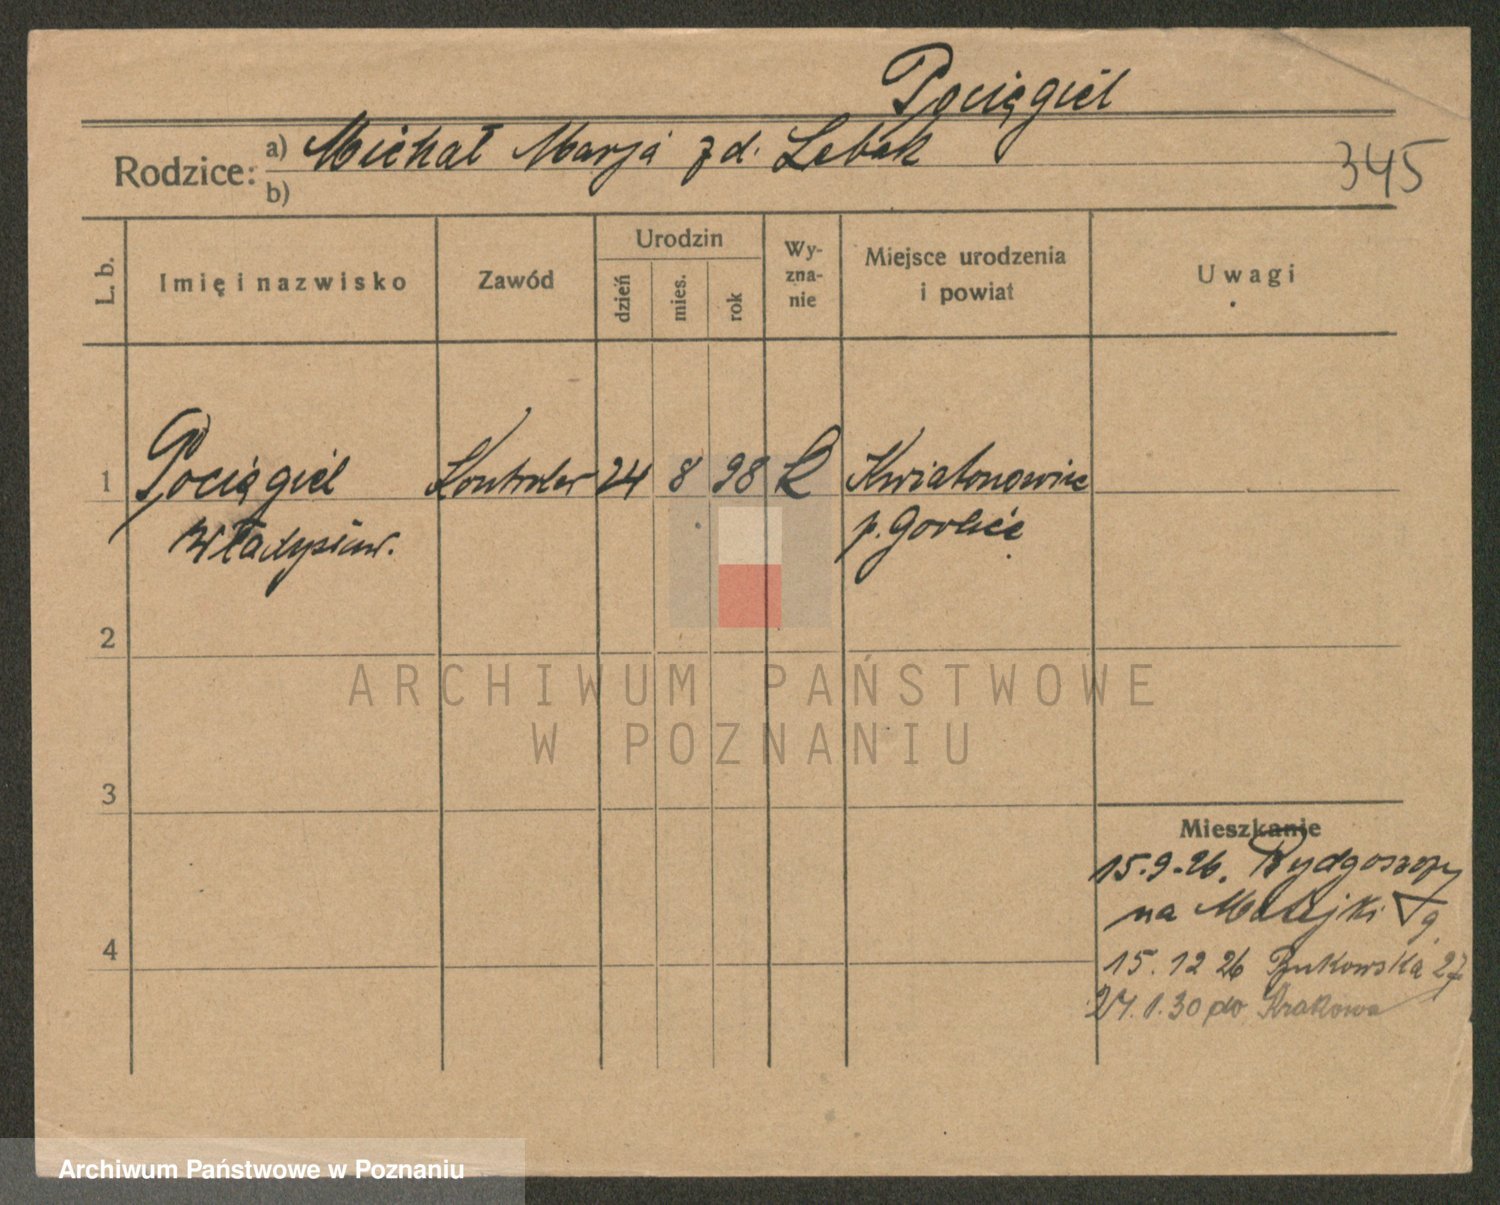 Pociągiel
Rodzice: a) Michał Marja z d. Lebak
b)
345
L. b.
Imię i nazwisko
Zawód
Urodzin
dzień
mies.
rok
Wy-
zna-
nie
Miejsce urodzenia
i powiat
Uwagi
1 Pociągiel Kontroler 24 8 98 Kwiatonowice
Władysław. p. Gorlice
2
3
4
Mieszkanie
15.9.26. Bydgoszczy
na Matejki 9
15.12 26 Bukowska 27
27.1.30 do Krakowa
ARCHIWUM PAŃSTWOWE
W POZNANIU
Archiwum Państwowe w Poznaniu